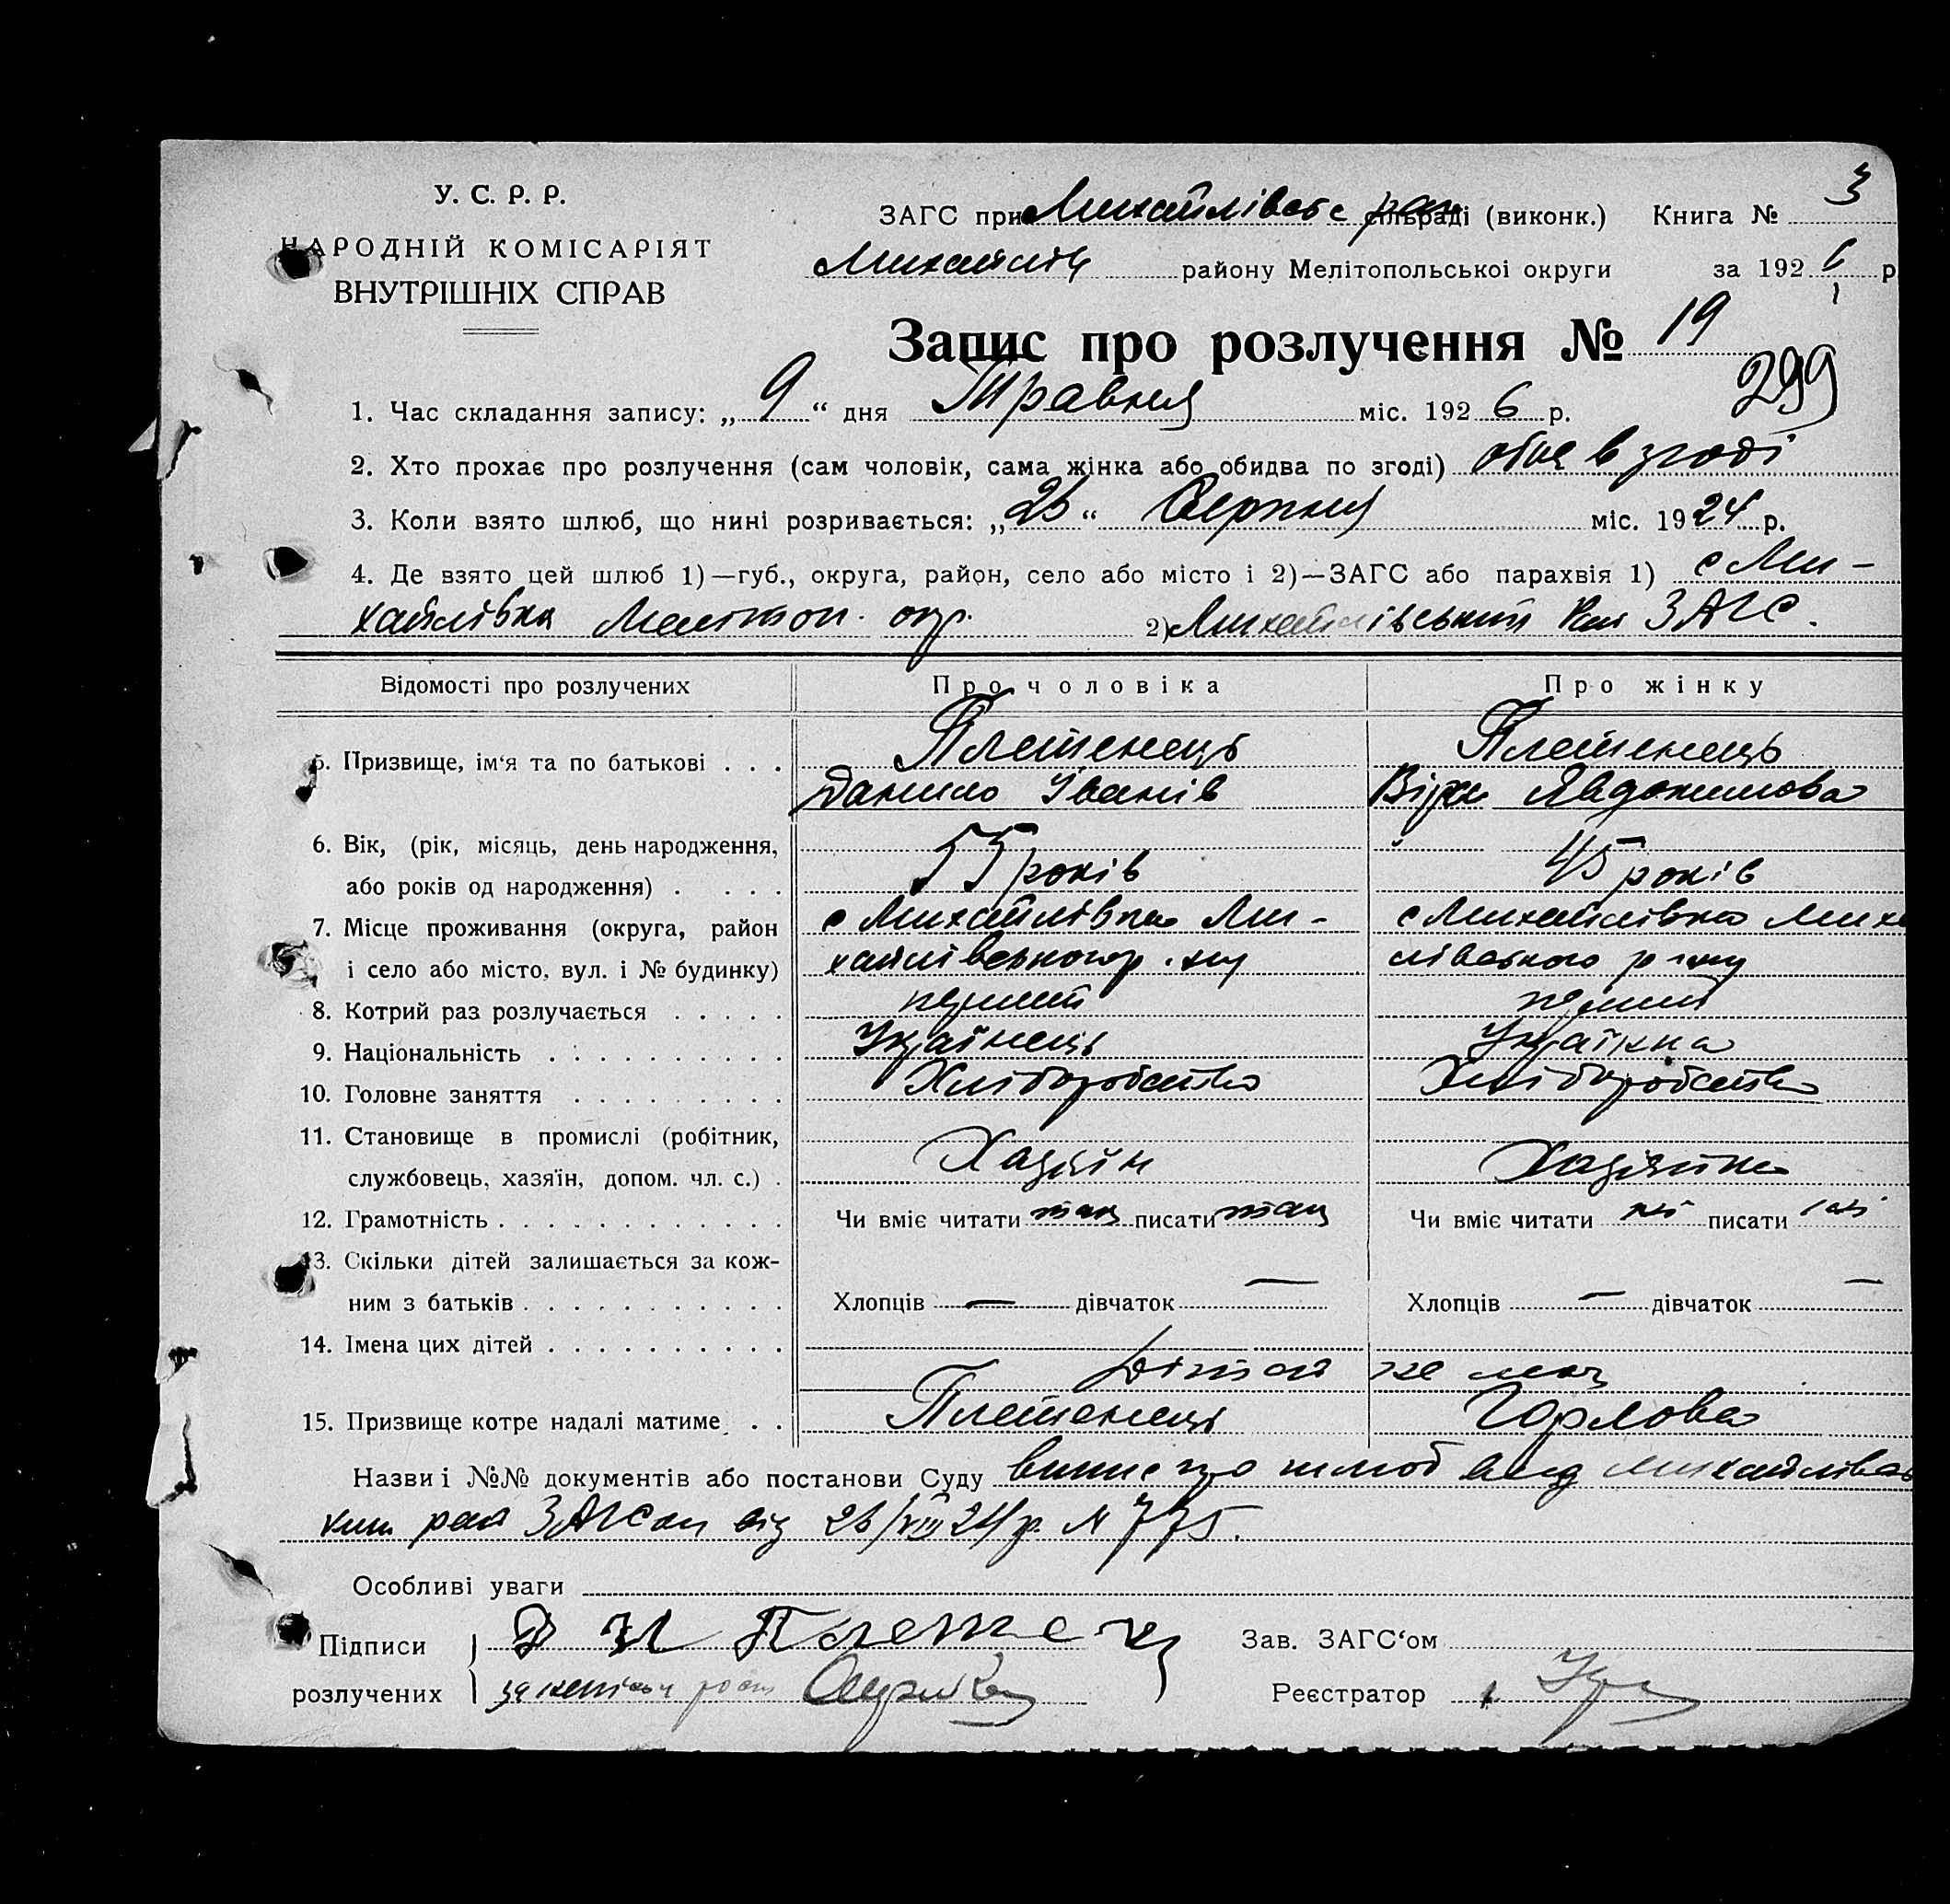 У. С. Р. Р.
НАРОДНІЙ КОМІСАРІЯТ
ВНУТРІШНІХ СПРАВ
ЗАГС при Михайлівське рай сільраді (виконк.) Книга № 3
Михайлів району Мелітопольскоі округи за 1926 р
Запис про розлучення № 19
299
1. Час складання запису: „9“ дня Травня міс. 1926 р.
2. Хто прохає про розлучення (сам чоловік, сама жінка або обидва по згоді) обоє в згоді
3. Коли взято шлюб, що нині розривається: „26“ Серпня міс. 1924 р.
4. Де взято цей шлюб 1)—губ., округа, район, село або місто і 2)—ЗАГС або парахвія 1) с Ми-
хайлівка Мелітоп. окр. 2) Михайлівський Рай ЗАГС.
Відомості про розлучених Про чоловіка Про жінку
5. Призвище, ім‘я та по батькові . . . Плетенець Плетенець
Данило Іванів Віра Явдокимова
6. Вік, (рік, місяць, день народження,
або років од народження) . . . . 55 років 45 років
7. Місце проживання (округа, район с Михайлівка Ми- с Михайлівка Миха
і село або місто, вул. і № будинку) хайлівського р.ну лівського р-ну
8. Котрий раз розлучається . . . . . перший перший
9. Національність . . . . . . . . . . Українець Українка
10. Головне заняття . . . . . . . . . Хліборобство Хліборобство
11. Становище в промислі (робітник,
службовець, хазяїн, допом. чл. с.) . Хазяїн Хазяїка
12. Грамотність . . . . . . . . . . . . Чи вміє читати так писати так Чи вміє читати ні писати ні
13. Скільки дітей залишається за кож-
ним з батьків . . . . . . . . . . . Хлопців — дівчаток — Хлопців — дівчаток —
14. Імена цих дітей . . . . . . . . . .
Дітей не має
15. Призвище котре надалі матиме . . Плетенець Горлова
Назви і №№ документів або постанови Суду випис про шлюб вид Михайлівсь
ким рай ЗАГСом від 26/VIII 24 р. № 775.
Особливі уваги
Підписи Д И Плетенец Зав. ЗАГС‘ом
розлучених Реєстратор